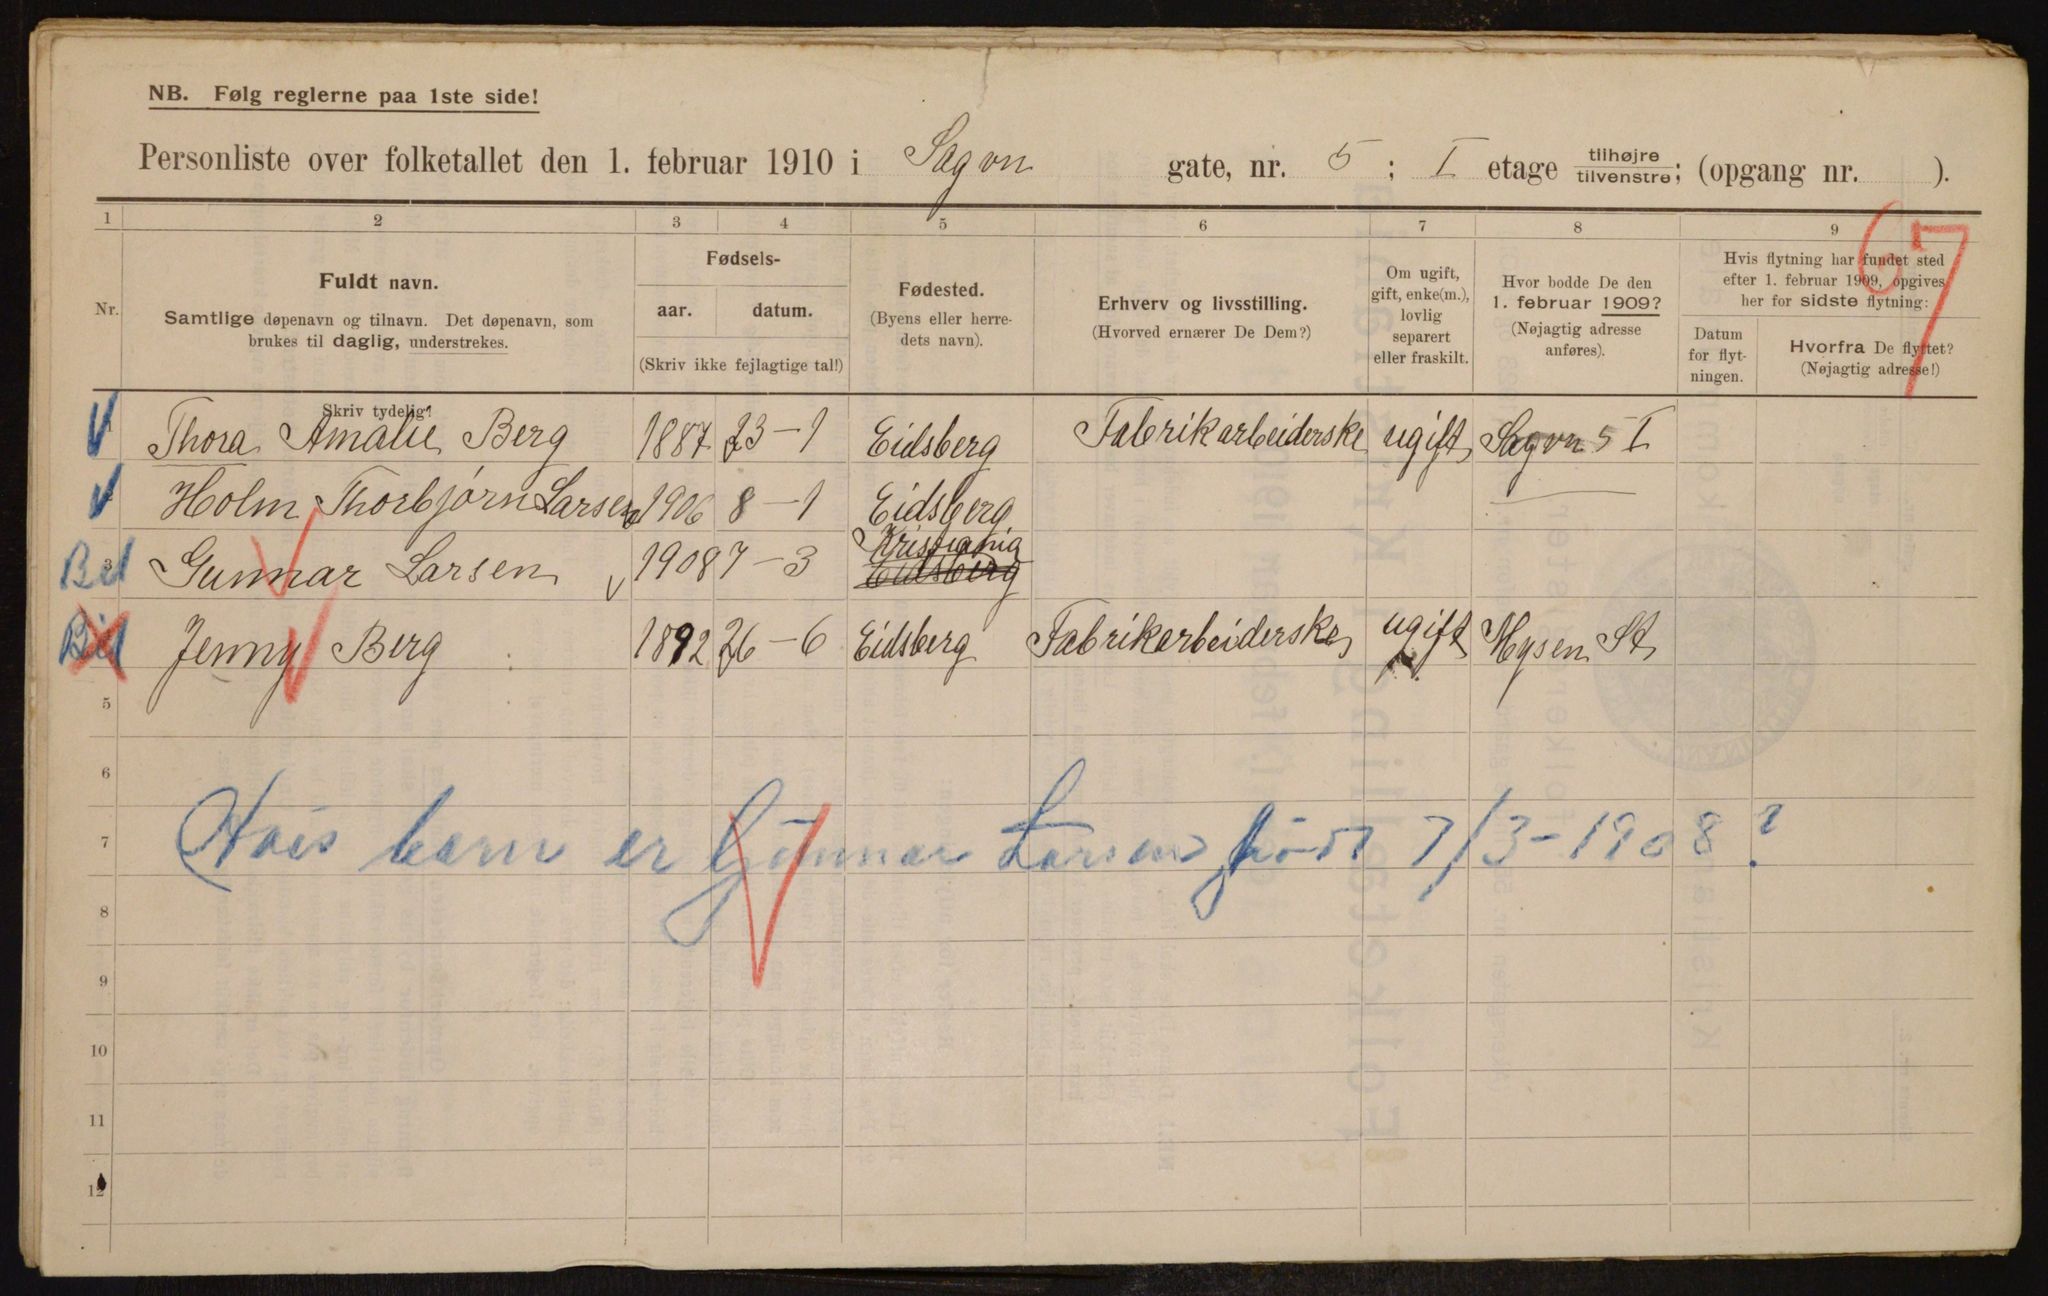 NB. Følg reglerne paa 1ste side!
Personliste over folketallet den 1. februar 1910 i Sagvn gate, nr. 5; I etage tilhøjre tilvenstre; (opgang nr. ).
1 2 3 4 5 6 7 8 9
67
Nr.
Fuldt navn.
Samtlige døpenavn og tilnavn. Det døpenavn, som
brukes til daglig, understrekes.
Skriv tydelig!
Fødsels-
aar. datum.
(Skriv ikke fejlagtige tal!)
Fødested.
(Byens eller herre-
dets navn).
Erhverv og livsstilling.
(Hvorved ernærer De Dem?)
Om ugift,
gift, enke(m.),
lovlig
separert
eller fraskilt.
Hvor bodde De den
1. februar 1909?
(Nøjagtig adresse
anføres).
Hvis flytning har fundet sted
efter 1. februar 1909, opgives
her for sidste flytning:
Datum
for flyt-
ningen.
Hvorfra De flyttet?
(Nøjagtig adresse!)
Thora Amalie Berg 1887 23-1 Eidsberg Fabrikarbeiderske ugift Sagvn 5 I
Holm Thorbjørn Larsen 1906 8-1 Eidsberg
Kristiania
3 Gunnar Larsen 1908 7-3 Eidsberg
Jenny Berg 1892 26-6 Eidsberg Fabrikarbeiderske ugift Mysen St
5
6
7 Hvis barn er Gunnar Larsen født 7/3-1908?
8
9
10
11
12